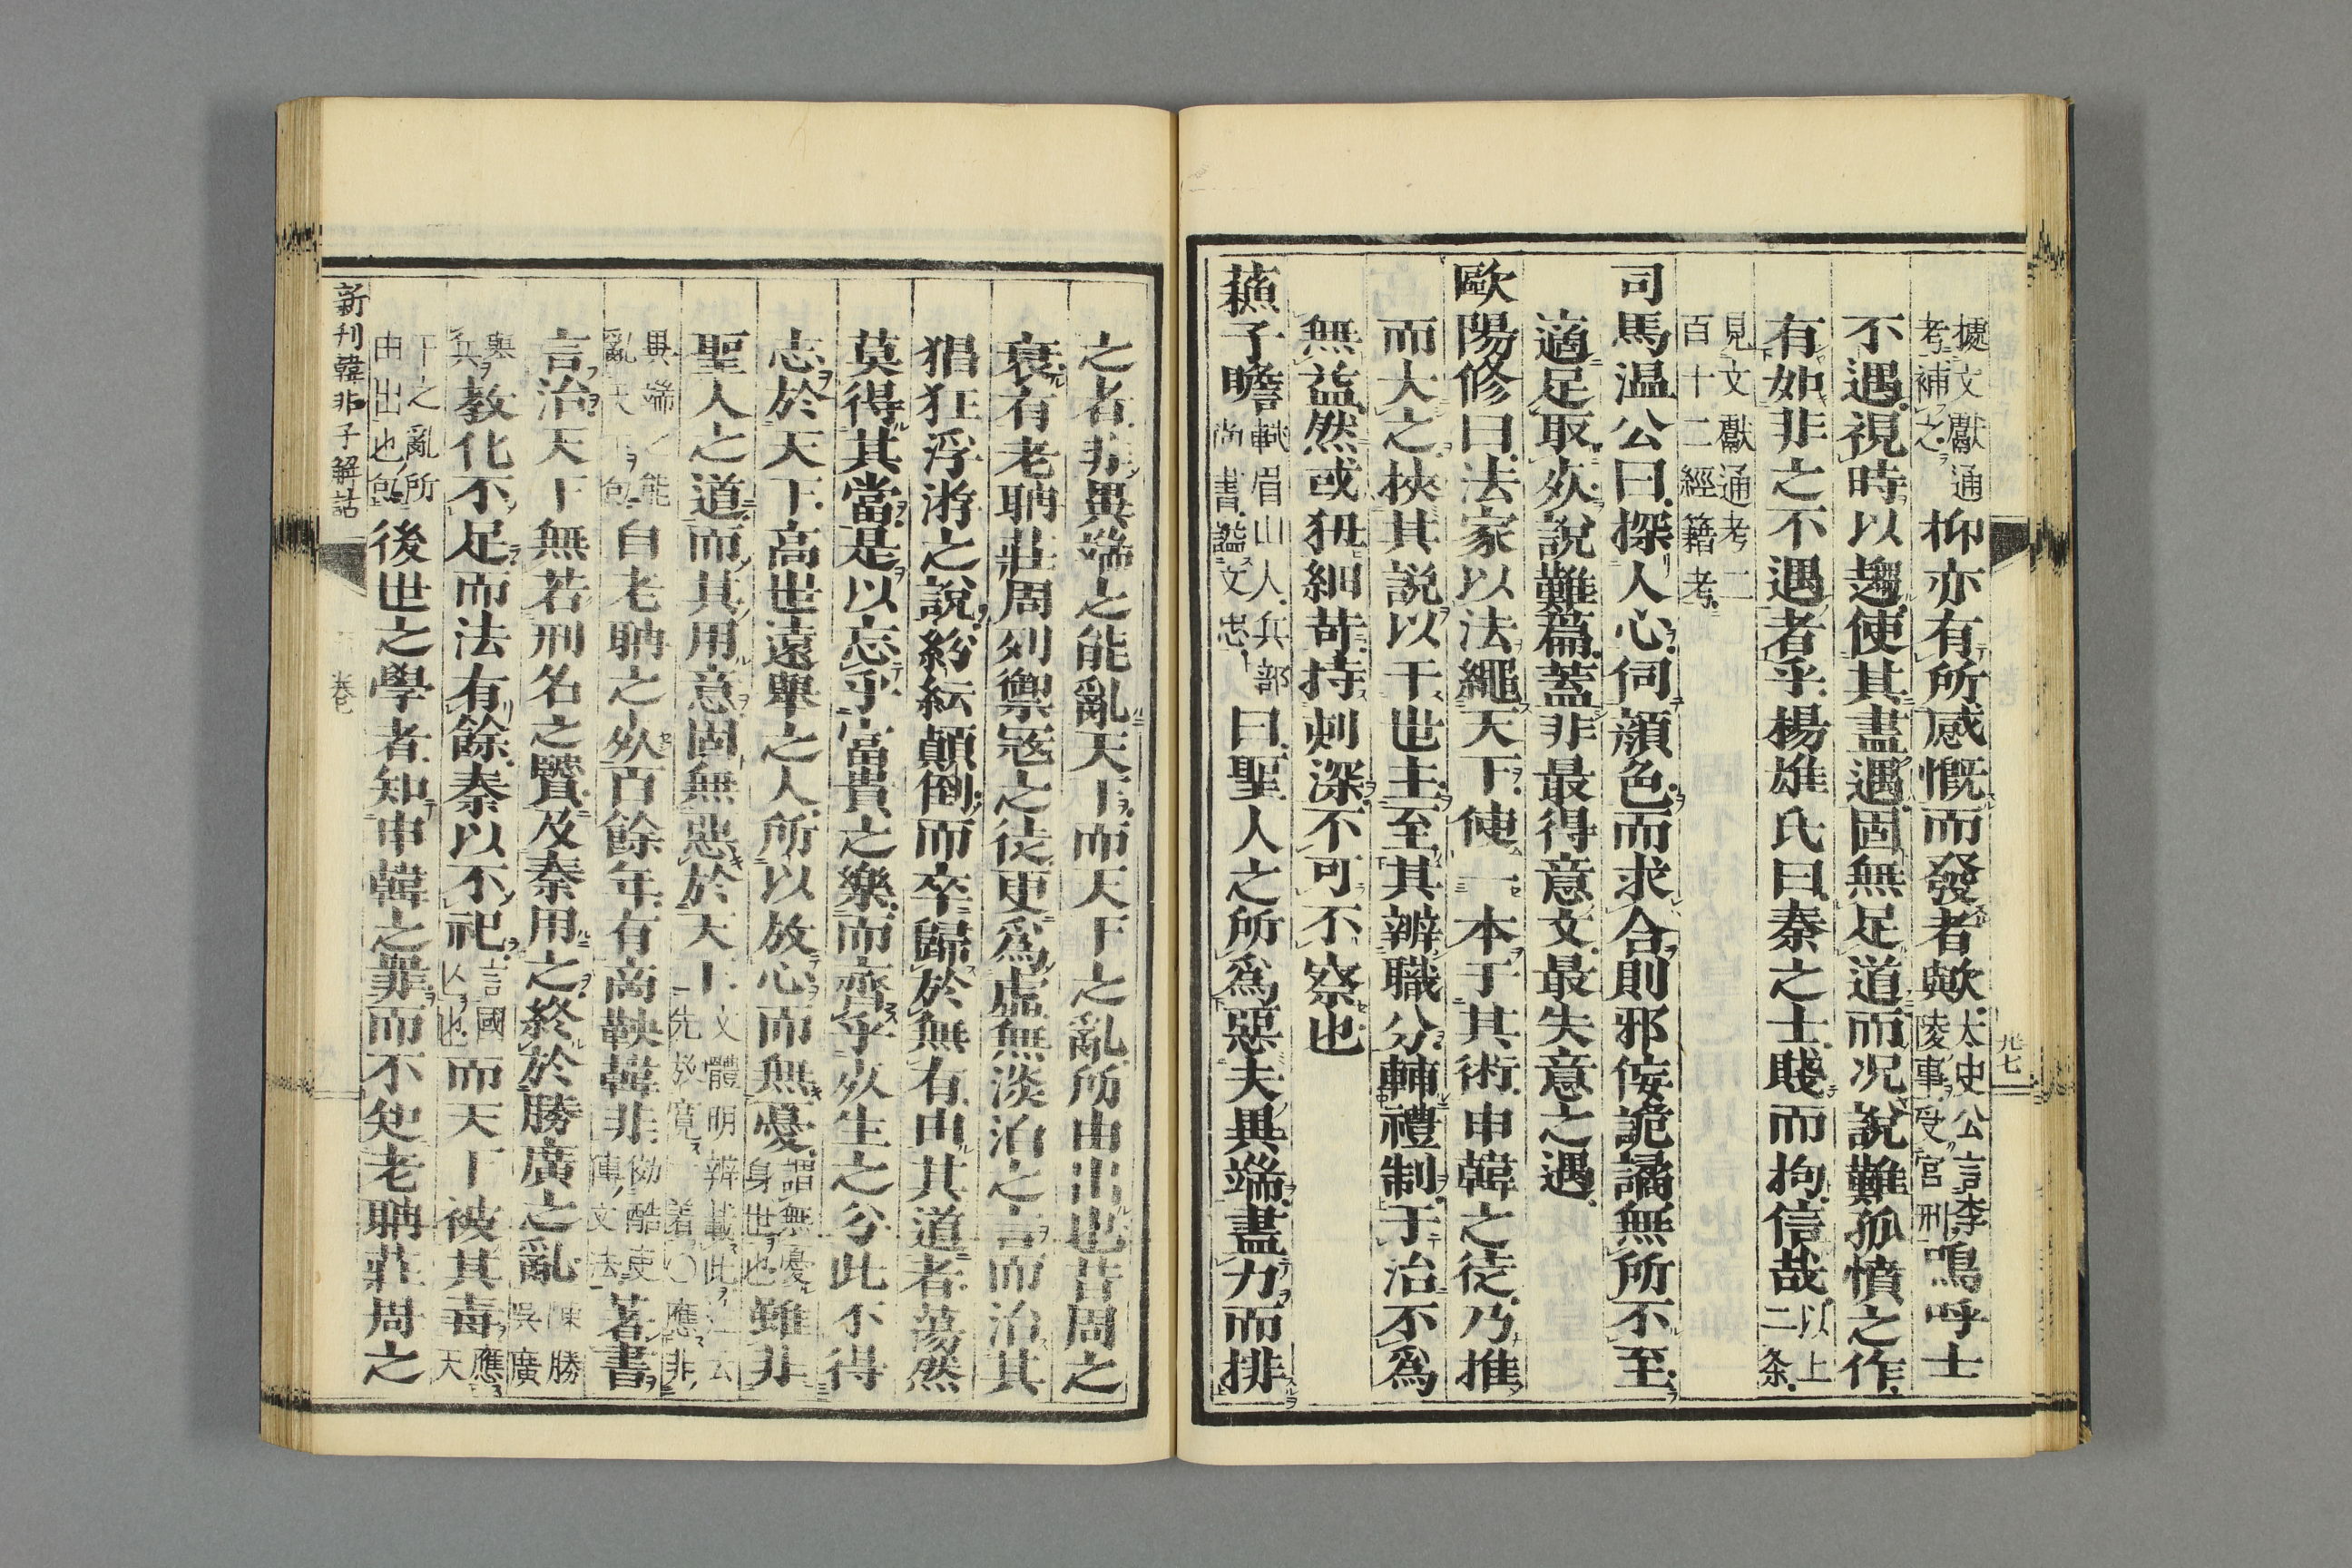 據文獻通考補之抑亦有所感慨而發者歟太史公言李陵事受宮刑嗚呼士
不遇視時以趨使其盡遇固無足道而况說難孤憤之作
有如非之不遇者乎楊雄氏曰秦之士賤而拘信哉以上二条
見文獻通考二百十二經籍考
司馬温公曰探人心伺顔色而求合則邪佞詭譎無所不至
適足取死說難篇蓋非最得意文最失意之遇
歐陽修曰法家以法繩天下使一本于其術申韓之徒乃推
而大之挾其説以干世主至其辨職分輔禮制于治不爲
無益然或狃細苛持刺深不可不察也
蘓子瞻軾眉山人兵部尚書謚文忠曰聖人之所爲惡夫異端盡力而排
之者非異端之能亂天下而天下之亂所由出也昔周之
衰有老聃莊周列禦宼之徒更爲虛無淡泊之言而治其
猖狂浮游之說紛紜顛倒而卒歸於無有由其道者蕩然
莫得其當是以忘乎富貴之樂而齊乎死生之分此不得
志於天下高世遠舉之人所以放心而無憂謂無憂身世也雖非
聖人之道而其用意固無惡於天下文體明辨載此注云先發寛一着〇應非
異端之能亂天下句自老聃之死百餘年有商鞅韓非倣酷吏傳文法著書
言治天下無若刑名之賢及秦用之終於勝廣之亂陳勝吳廣
舉兵教化不足而法有餘秦以不祀言國亾也而天下被其毒應天
下之亂所由出也句後世之學者知申韓之罪而不知老聃莊周之
新刊韓非子解詁
卷
卅七